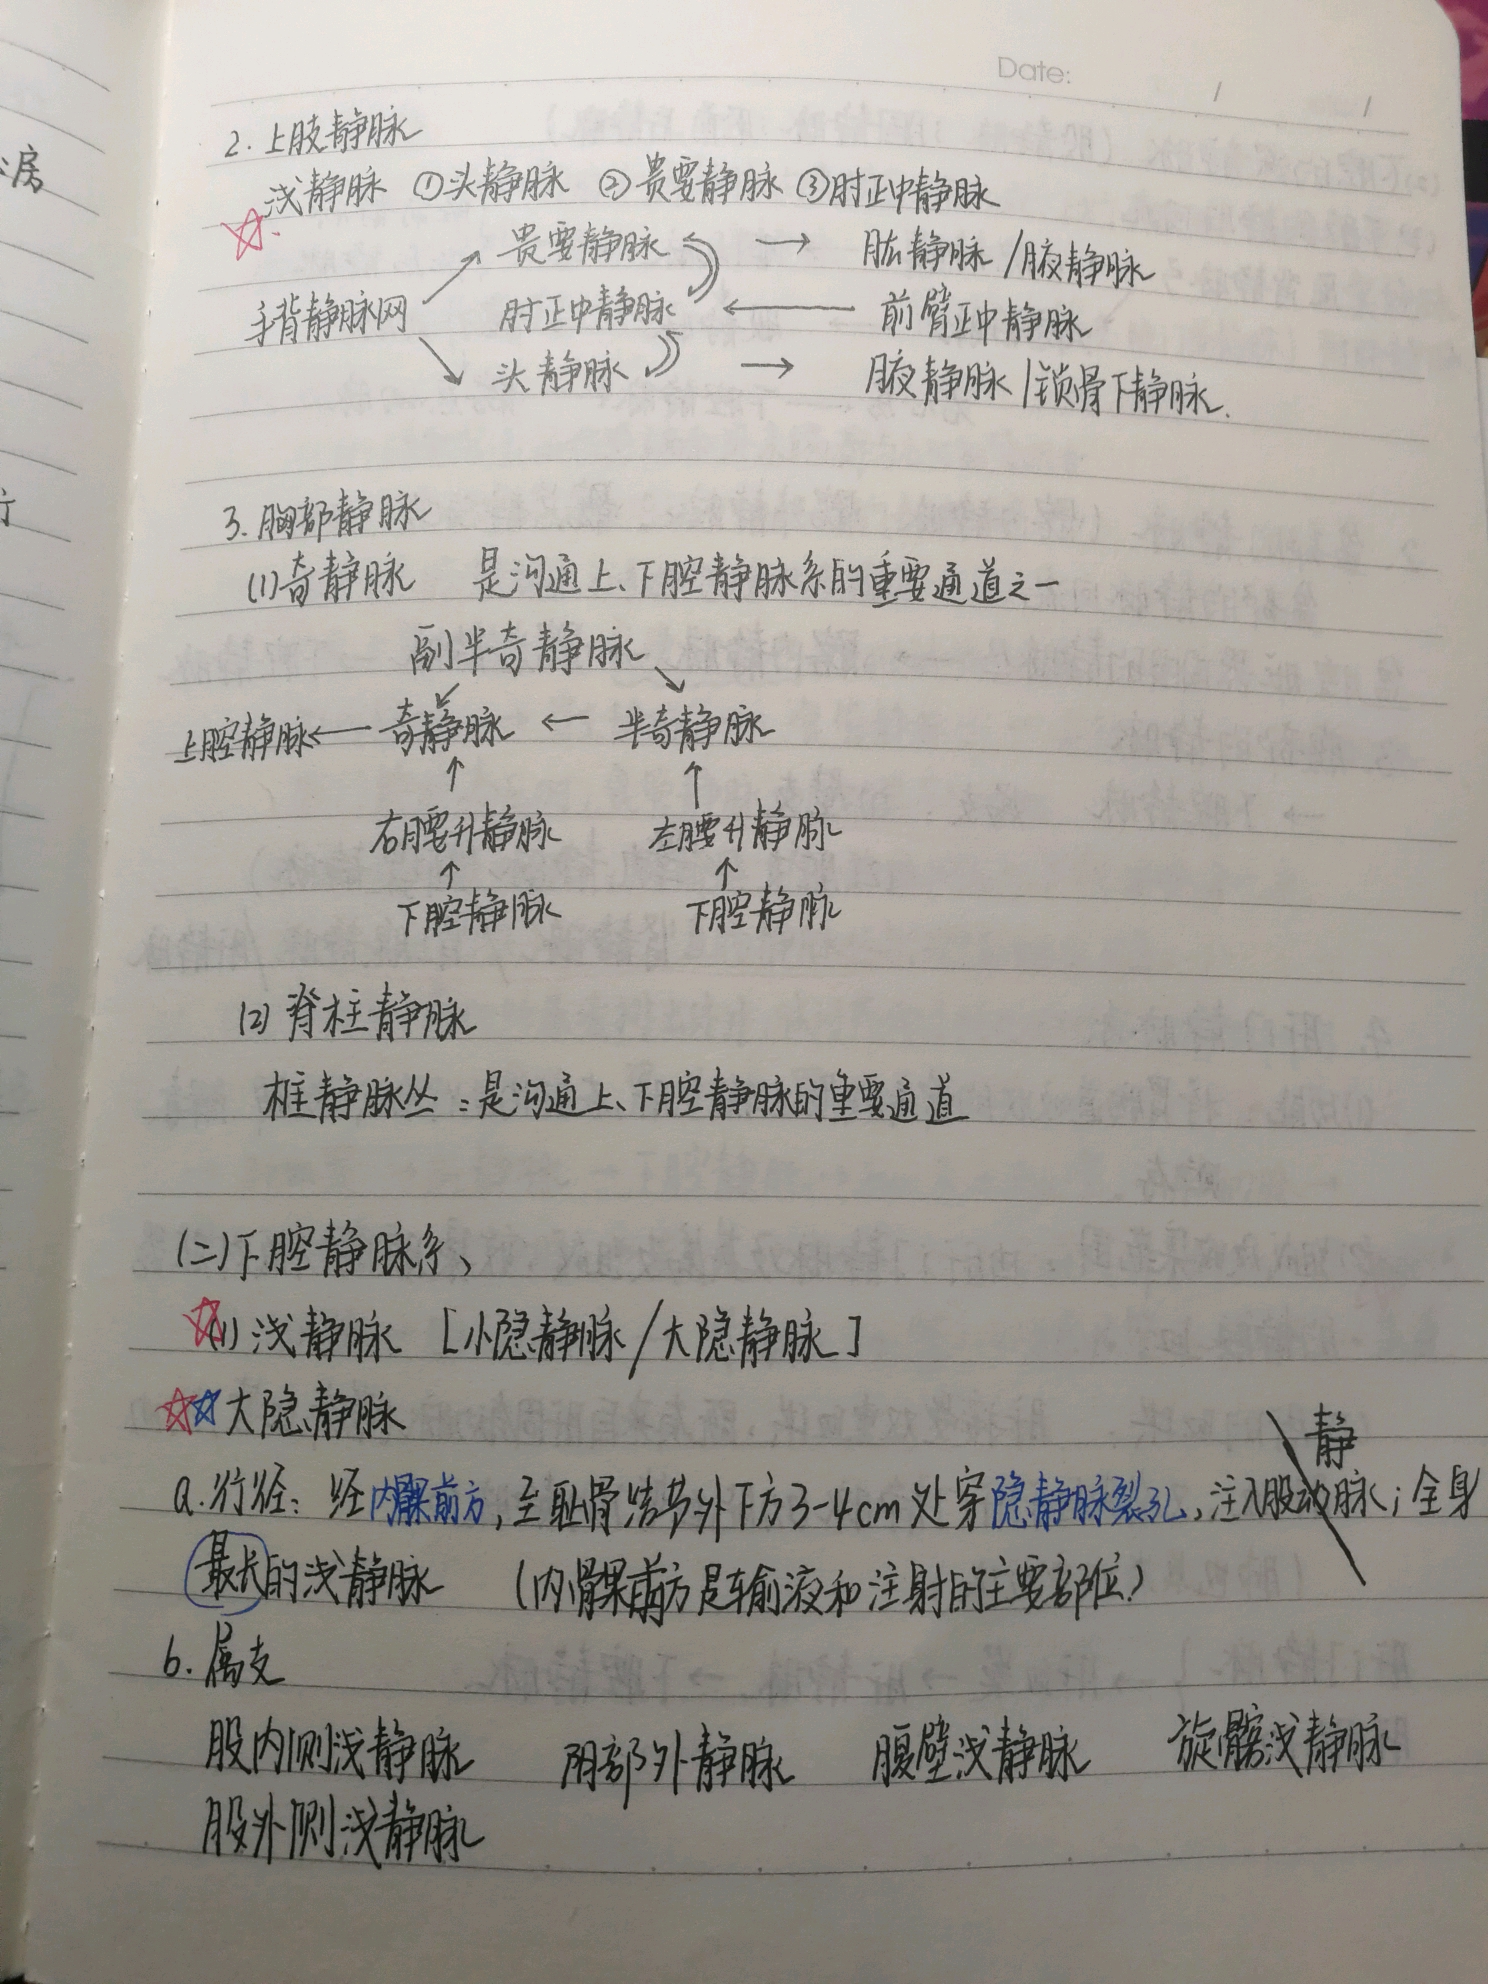 Date: / /
房
2. 上肢静脉
浅静脉 ①头静脉 ②贵要静脉 ③肘正中静脉
☆ 贵要静脉 → 肱静脉/腋静脉
手背静脉网 肘正中静脉 ← 前臂正中静脉
头静脉 → 腋静脉/锁骨下静脉.
3. 胸部静脉
(1)奇静脉 是沟通上、下腔静脉系的重要通道之一
副半奇静脉
上腔静脉 ← 奇静脉 ← 半奇静脉
↑ ↑
右腰升静脉 左腰升静脉
↑ ↑
下腔静脉 下腔静脉
(2)脊柱静脉
椎静脉丛:是沟通上、下腔静脉的重要通道
(二)下腔静脉系、
☆(1)浅静脉 [小隐静脉/大隐静脉]
☆☆大隐静脉
静
a.行径:经内髁前方,至耻骨结节外下方3-4cm处穿隐静脉裂孔,注入股动脉;全身
最长的浅静脉 (内髁前方是输液和注射的主要部位)
b.属支
股内侧浅静脉 阴部外静脉 腹壁浅静脉 旋髂浅静脉
股外侧浅静脉